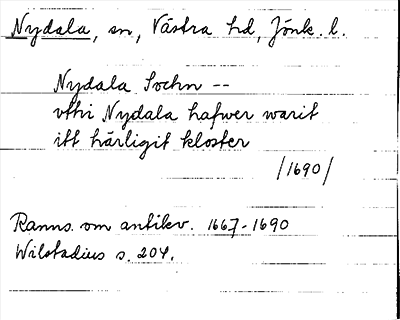 Nydala, sn, Västra hd, Jönk. l.
Nydala Sochn --
vthi Nydala hafwer warit
itt härligit kloster
/1690/
Ranns. om antikv. 1667-1690
Wilstadius s. 204.